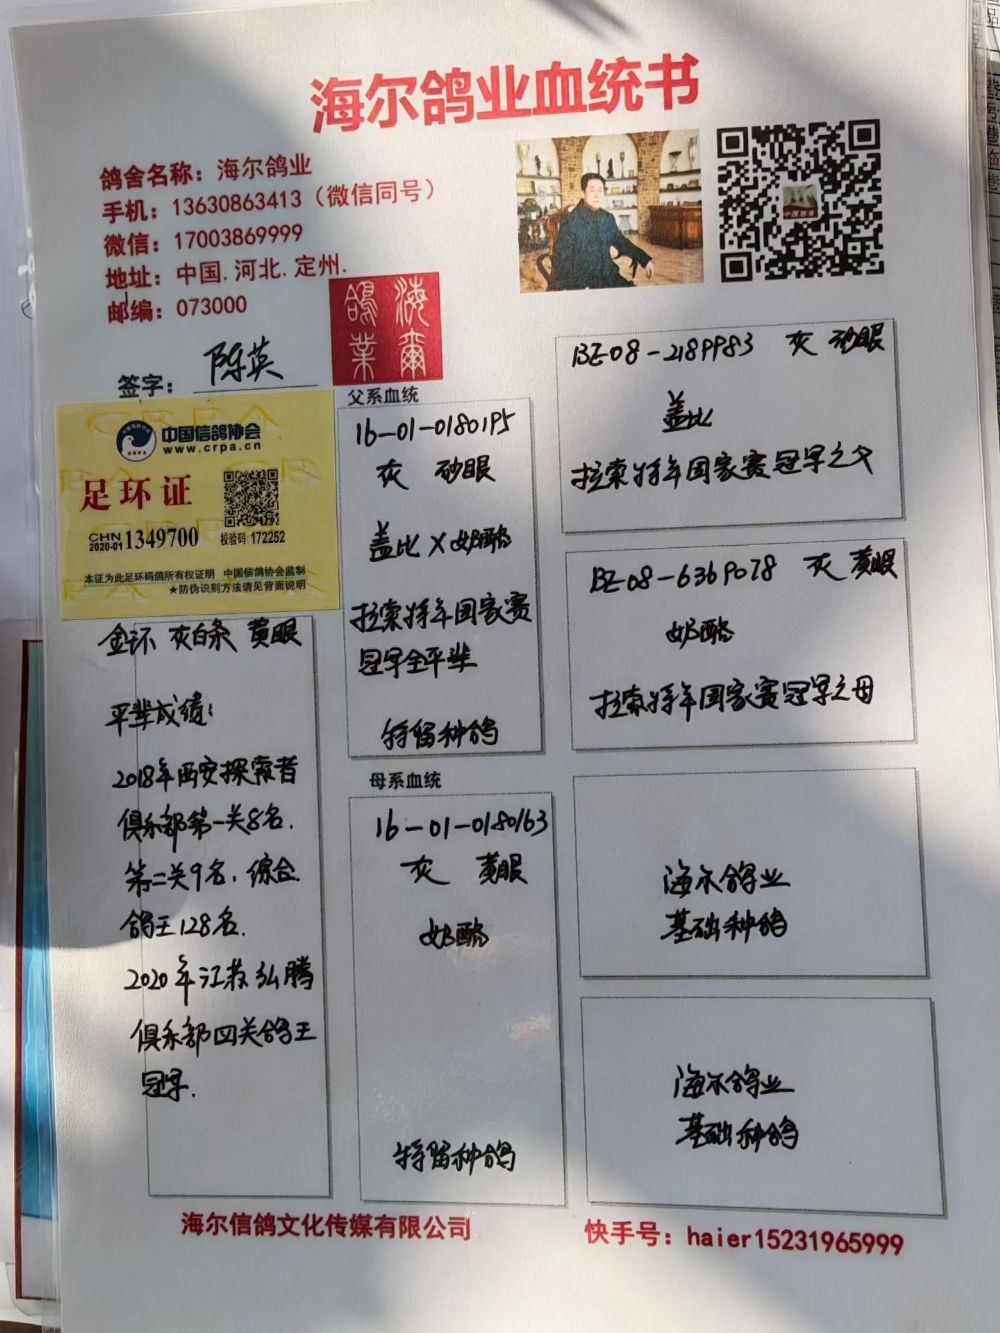 海尔鸽业血统书
鸽舍名称：海尔鸽业
手机：13630863413（微信同号）
微信：17003869999
地址：中国.河北.定州.
邮编：073000
签字：陈英
海尔
鸽业
中国信鸽协会
www.crpa.cn
足环证
CHN
2020-01 1349700
校验码：172252
本证为此足环码鸽所有权证明 中国信鸽协会监制
★防伪识别方法请见背面说明
金环 灰白条 黄眼
平辈成绩：
2018年西安探索者
俱乐部第一关8名.
第二关9名.综合.
鸽王128名.
2020年江苏弘腾
俱乐部四关鸽王
冠军.
父系血统
16-01-0180195
灰 砂眼
盖比X奶酪
拉索特年国家赛
冠军全平辈
特留种鸽
母系血统
16-01-0180163
灰 黄眼
奶酪
特留种鸽
BE-08-2189983 灰 砂眼
盖比
拉索特年国家赛冠军之父
BE-08-6369078 灰 黄眼
奶酪
拉索特年国家赛冠军之母
海尔鸽业
基础种鸽
海尔鸽业
基础种鸽
海尔信鸽文化传媒有限公司
快手号：haier15231965999